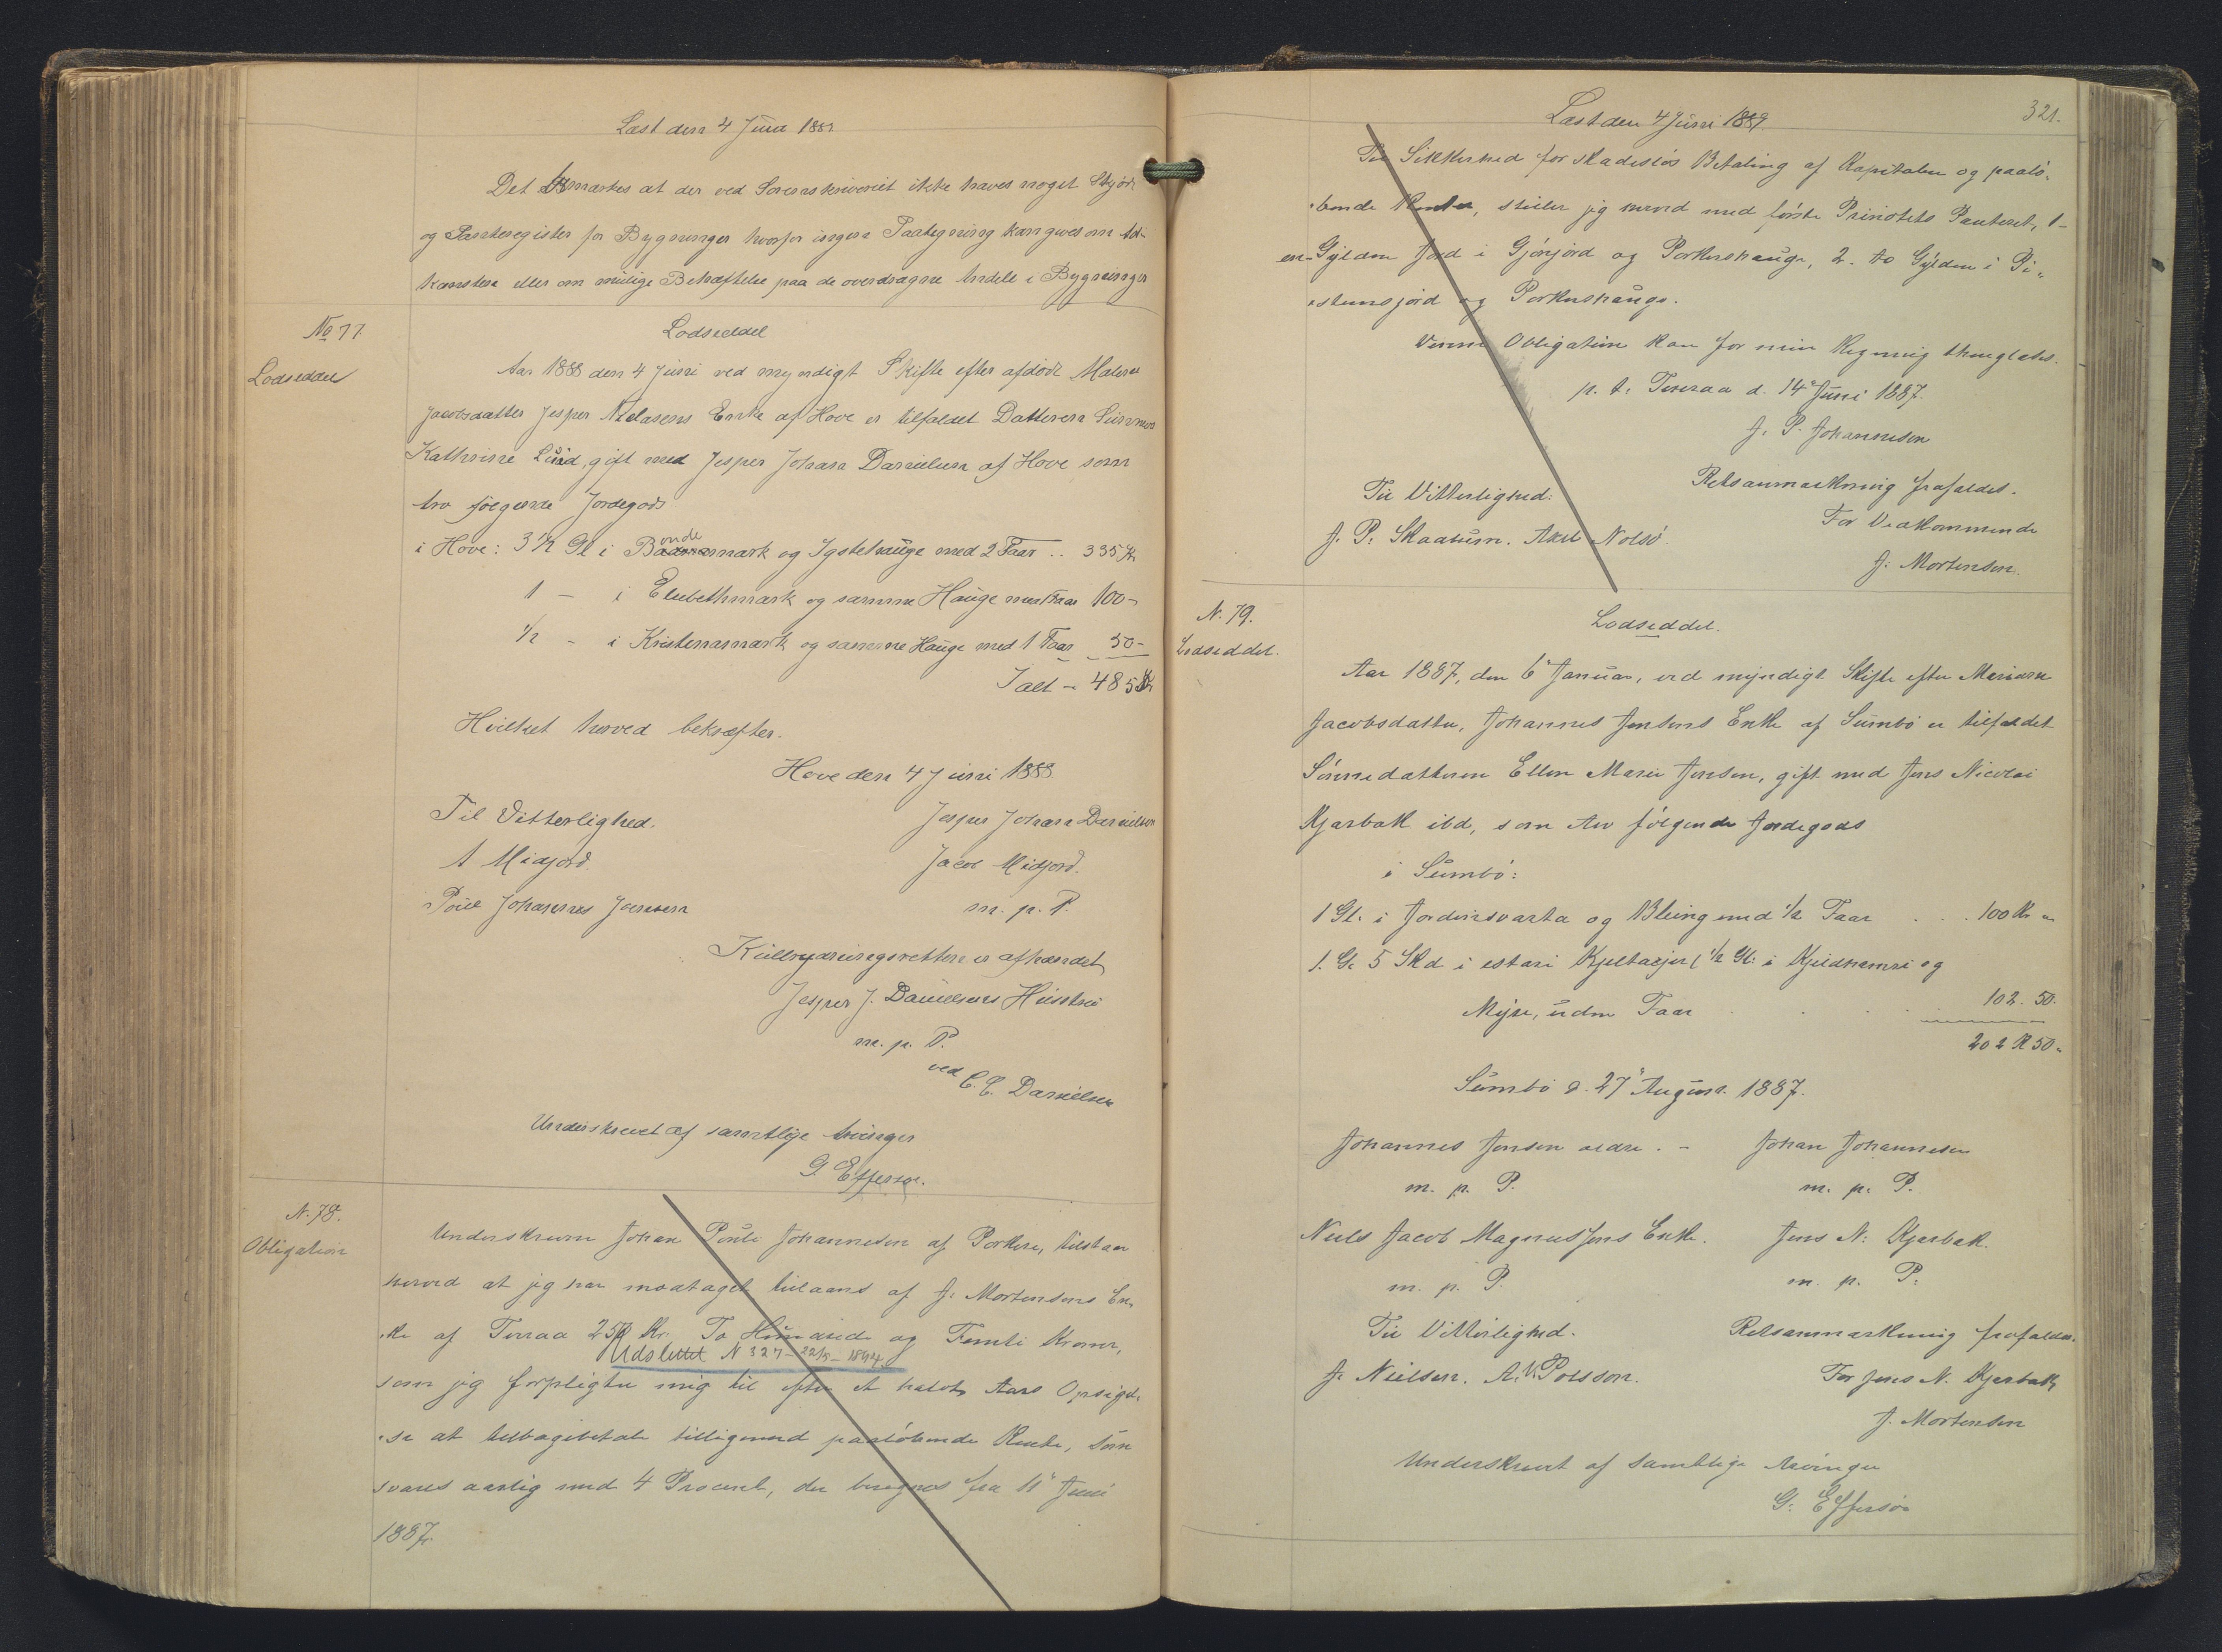 Læst den 4 Juni 1889
Det bemærkes at der ved Sorenskriveriet ikke haves noget Skjøde
og Panteregister for Bygninger hvorfor ingen Paategning kan gives om Ad-
komsten eller om mulige Behæftelse paa de overdragne Andele i Bygninger
No 77.
Lodseddel
Lodseddel
Aar 1888 den 4 Juni ved myndigt Skifte efter afdøde Malene
Jacobsdatter Jesper Niclasens Enke af Hove er tilfaldet Datteren Sunneva
Kathrine Lüid, gift med Jesper Johan Danielsen af Hove som
Arv følgende Jordegods
i Hove: 3 1/2 Gl i Bondemark og Ygstehauge med 2 Faar .. 335 Kr
1 - i Elsebethmark og samme Hauge med Faar 100 -
1/2 - i Kristenamark og samme Hauge med 1 Faar 50 -
Ialt - 485 Kr
Hvilket herved bekræftes.
Hove den 4 Juni 1888
Til Vitterlighed.
Jesper Johan Danielsen
A Midjord.
Jacob Midjord.
Poul Johannes Joensen
m. p. P.
Kulbrydningsretten er afhændet
Jesper J. Danielsens Hustru
m. p. P.
ved C. C. Danielsen
Underskrevet af samtlige Arvinger
G. Effersøe.
N. 78.
Obligation
Underskrevne Johan Pouli Johannesen af Porkere, tilstaar
herved at jeg har modtaget tillaans af J. Mortensens En-
ke af Tveraa 250 Kr. To Hundrede og Femti Kroner,
Udslettet N 327 - 22/8 - 1894.
som jeg forpligter mig til efter et halvt Aars Opsigel-
se at tilbagebetale tilligemed paaløbende Rente, som
svares aarlig med 4 Procent, der beregnes fra 11" Juni
1887.
321.
Læst den 4 Juni 1889
Til Sikkerhed for skadesløs Betaling af Kapitalen og paalø-
bende Renter, stiller jeg herved med første Prioritets Panteret, 1-
en Gylden Jord i Gjónjord og Porkershauge, 2. to Gylden i Pi-
stensjord og Porkershauge.
Denne Obligation kan for min Regning thinglæses.
p. t. Tveraa d. 14" Juni 1887.
J. P. Johannesen
Til Vitterlighed:
Retsanmærkning frafaldes.
J. P. Skaalum. Axel Nolsö.
For Vedkommende
J. Mortensen.
N. 79.
Lodseddel.
Lodseddel.
Aar 1887, den 6" Januar, ved myndigt Skifte efter Mariane
Jacobsdatter, Johannes Jensens Enke af Sumbö er tilfaldet
Sønnedatteren Ellen Marie Jensen, gift med Jens Nicolai
Kjærbæk ibd, som Arv følgende Jordegods
i Sumbö:
1 Gl. i Jordinsvarta og Bleing med 1/2 Faar . . . 100 Kr "
1. Gl. 5 Skd i estari Kjeltarjer (1/2 Gl. i Kjeldhamri og
Mýre, uden Faar . . . 102. 50.
202 K 50 "
Sumbö d. 27" August 1887.
Johannes Jensen ældre. - Johan Johannesen
m. p. P. m. p. P.
Niels Jacob Magnussens Enke. Jens N. Kjærbæk.
m. p. P. m. p. P.
Til Vitterlighed.
Retsanmærkning frafaldes.
J. Nielsen. A. V. Polsson.
For Jens N. Kjærbæk
J. Mortensen
Underskrevet af samtlige Arvinger
G. Effersøe